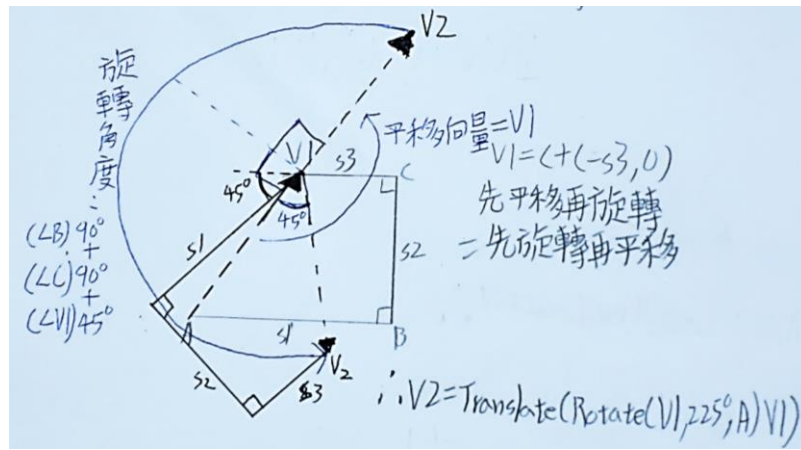 V2
旋轉角度:
(∠B)90°
+
(∠C)90°
+
(∠V1)45°
平移向量=V1
V1=C+(-s3,0)
先平移再旋轉
=先旋轉再平移
V1
s3
C
45°
45°
s1
s2
A
s1
B
V2
s2
s3
∴V2=Translate(Rotate(V1,225°,A)V1)